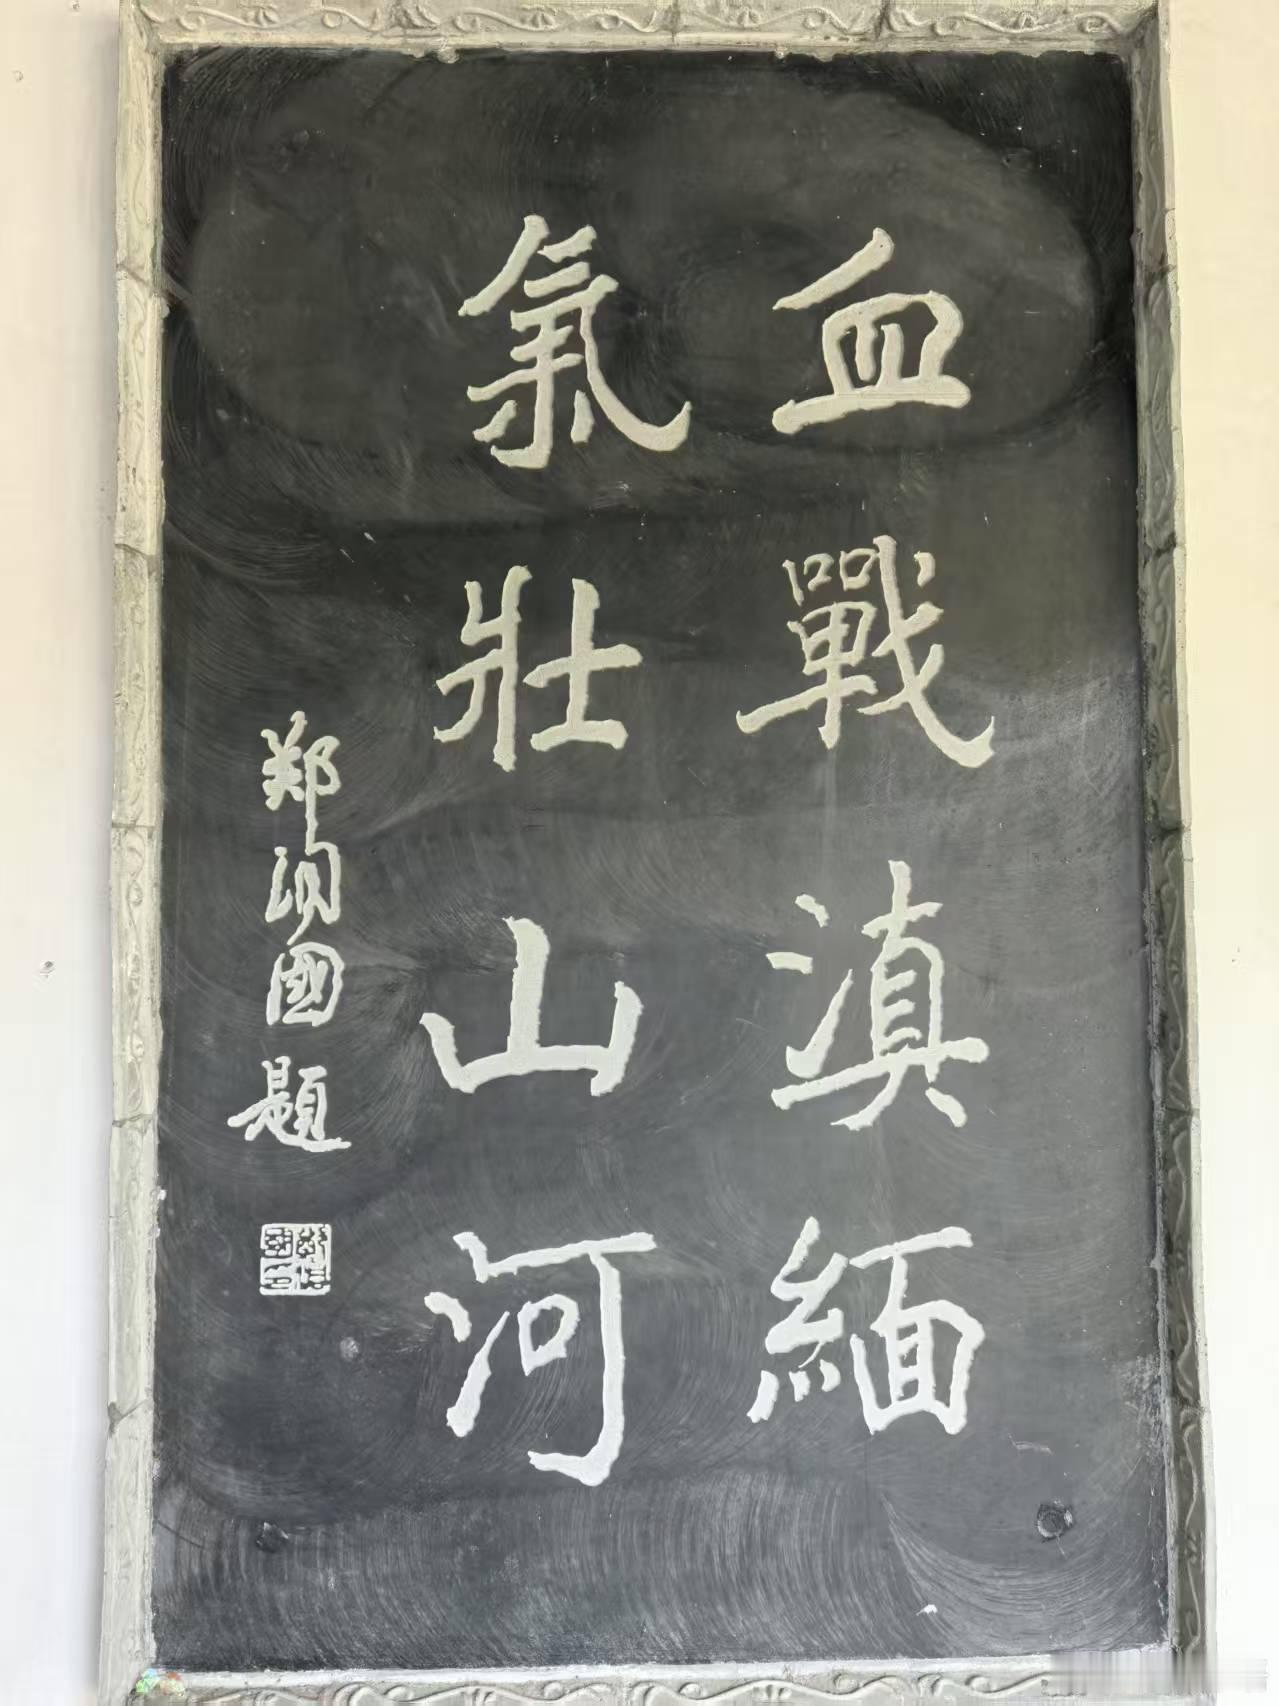 血戰滇緬
氣壯山河
郑洞國題